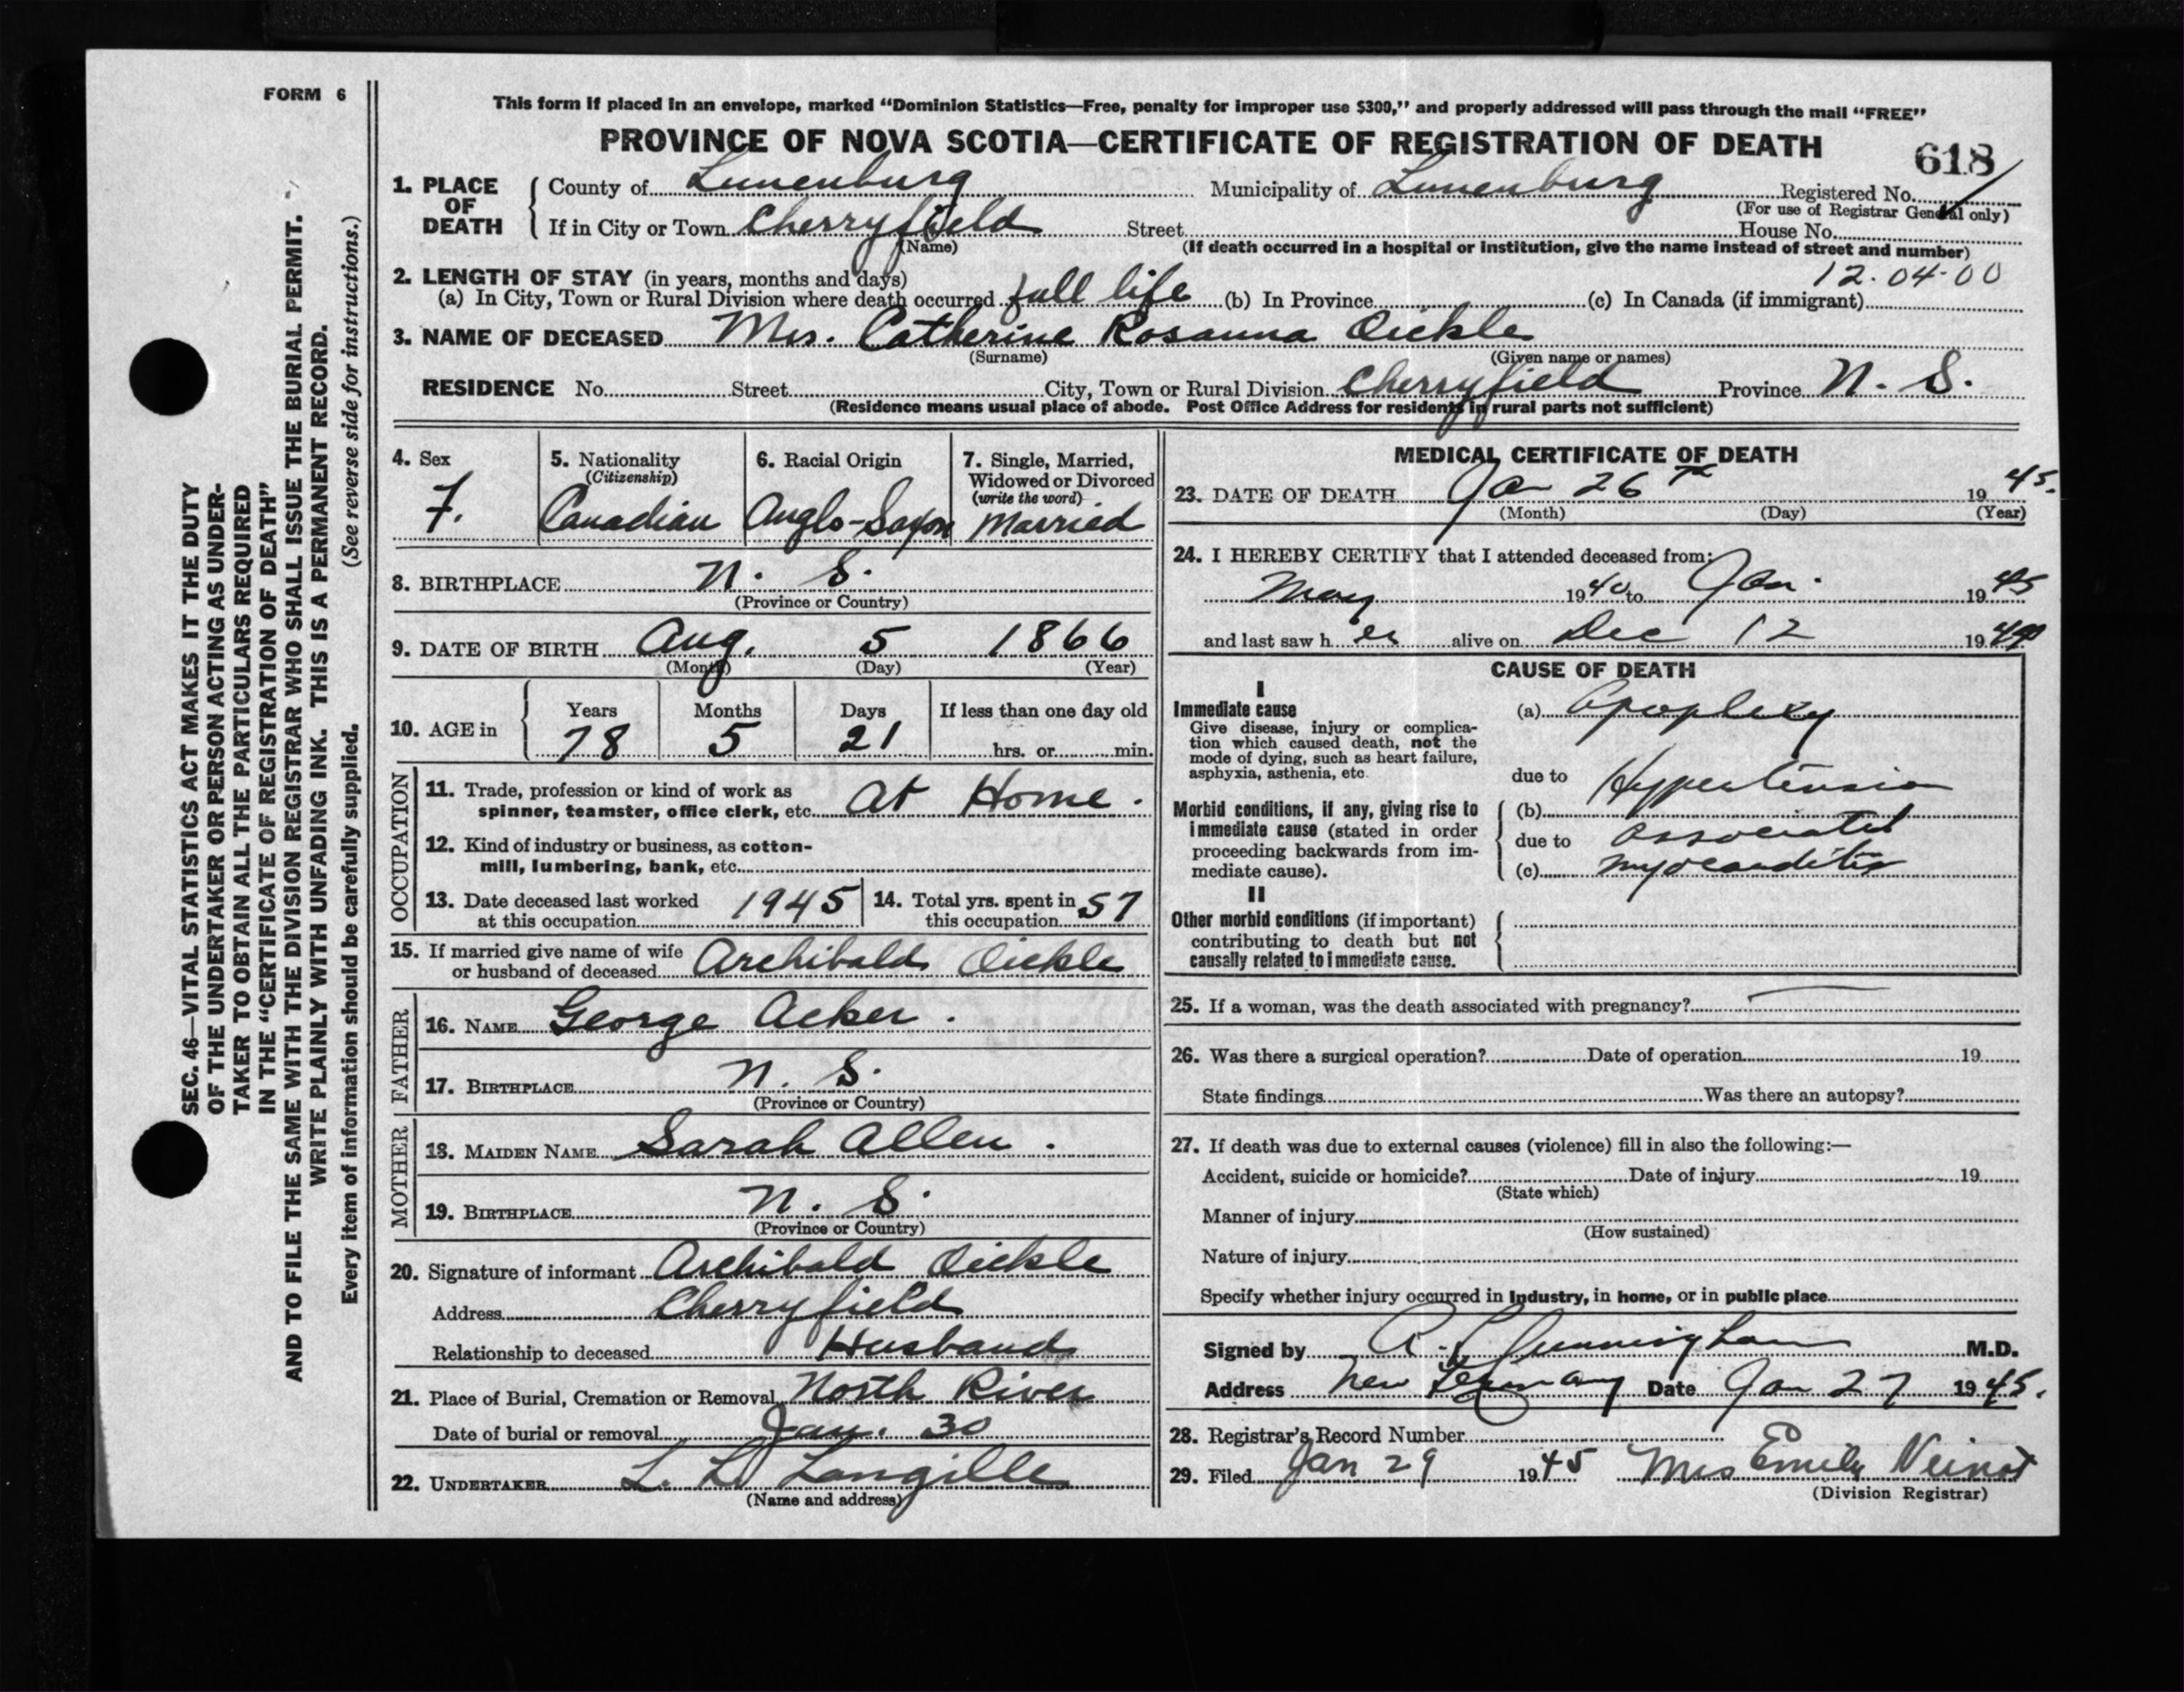 FORM 6
This form if placed in an envelope, marked “Dominion Statistics—Free, penalty for improper use $300,” and properly addressed will pass through the mail “FREE”
PROVINCE OF NOVA SCOTIA—CERTIFICATE OF REGISTRATION OF DEATH
618
1. PLACE OF DEATH County of Lunenburg Municipality of Lunenburg Registered No.
(For use of Registrar General only)
If in City or Town Cherryfield Street House No.
(Name) (If death occurred in a hospital or institution, give the name instead of street and number)
12.04.00
2. LENGTH OF STAY (in years, months and days)
(a) In City, Town or Rural Division where death occurred full life (b) In Province (c) In Canada (if immigrant)
3. NAME OF DECEASED Mrs. Catherine Rosanna Oickle
(Surname) (Given name or names)
RESIDENCE No. Street City, Town or Rural Division Cherryfield Province N. S.
(Residence means usual place of abode. Post Office Address for residents in rural parts not sufficient)
4. Sex F.
5. Nationality
(Citizenship)
Canadian
6. Racial Origin
Anglo-Saxon
7. Single, Married,
Widowed or Divorced
(write the word)
Married
8. BIRTHPLACE N. S.
(Province or Country)
9. DATE OF BIRTH Aug. 5 1866
(Month) (Day) (Year)
10. AGE in Years Months Days If less than one day old
78 5 21 hrs. or min.
OCCUPATION
11. Trade, profession or kind of work as
spinner, teamster, office clerk, etc. At Home.
12. Kind of industry or business, as cotton-
mill, lumbering, bank, etc.
13. Date deceased last worked
at this occupation 1945
14. Total yrs. spent in
this occupation 57
15. If married give name of wife
or husband of deceased Archibald Oickle
FATHER
16. NAME George Acker.
17. BIRTHPLACE N. S.
(Province or Country)
MOTHER
18. MAIDEN NAME Sarah Allen.
19. BIRTHPLACE N. S.
(Province or Country)
20. Signature of informant Archibald Oickle
Address Cherryfield
Relationship to deceased Husband
21. Place of Burial, Cremation or Removal North River
Date of burial or removal Jan. 30
22. UNDERTAKER L. L. Langille
(Name and address)
MEDICAL CERTIFICATE OF DEATH
23. DATE OF DEATH Ja 26th 1945.
(Month) (Day) (Year)
24. I HEREBY CERTIFY that I attended deceased from:
May 1940 to Jan. 1945
and last saw her alive on Dec 12 19
CAUSE OF DEATH
I
Immediate cause
Give disease, injury or complica-
tion which caused death, not the
mode of dying, such as heart failure,
asphyxia, asthenia, etc.
(a) Apoplexy
due to Hypertension
Morbid conditions, if any, giving rise to
immediate cause (stated in order
proceeding backwards from im-
mediate cause).
(b)
due to associated
(c) myocarditis
II
Other morbid conditions (if important)
contributing to death but not
causally related to immediate cause.
25. If a woman, was the death associated with pregnancy?
26. Was there a surgical operation? Date of operation 19
State findings Was there an autopsy?
27. If death was due to external causes (violence) fill in also the following:—
Accident, suicide or homicide? Date of injury 19
(State which)
Manner of injury
(How sustained)
Nature of injury
Specify whether injury occurred in industry, in home, or in public place
Signed by Cunningham M.D.
Address New Germany Date Jan 27 1945.
28. Registrar's Record Number
29. Filed Jan 29 1945 Mrs Emily Veinot
(Division Registrar)
SEC. 46—VITAL STATISTICS ACT MAKES IT THE DUTY
OF THE UNDERTAKER OR PERSON ACTING AS UNDER-
TAKER TO OBTAIN ALL THE PARTICULARS REQUIRED
IN THE “CERTIFICATE OF REGISTRATION OF DEATH”
AND TO FILE THE SAME WITH THE DIVISION REGISTRAR WHO SHALL ISSUE THE BURIAL PERMIT.
WRITE PLAINLY WITH UNFADING INK. THIS IS A PERMANENT RECORD.
Every item of information should be carefully supplied. (See reverse side for instructions.)